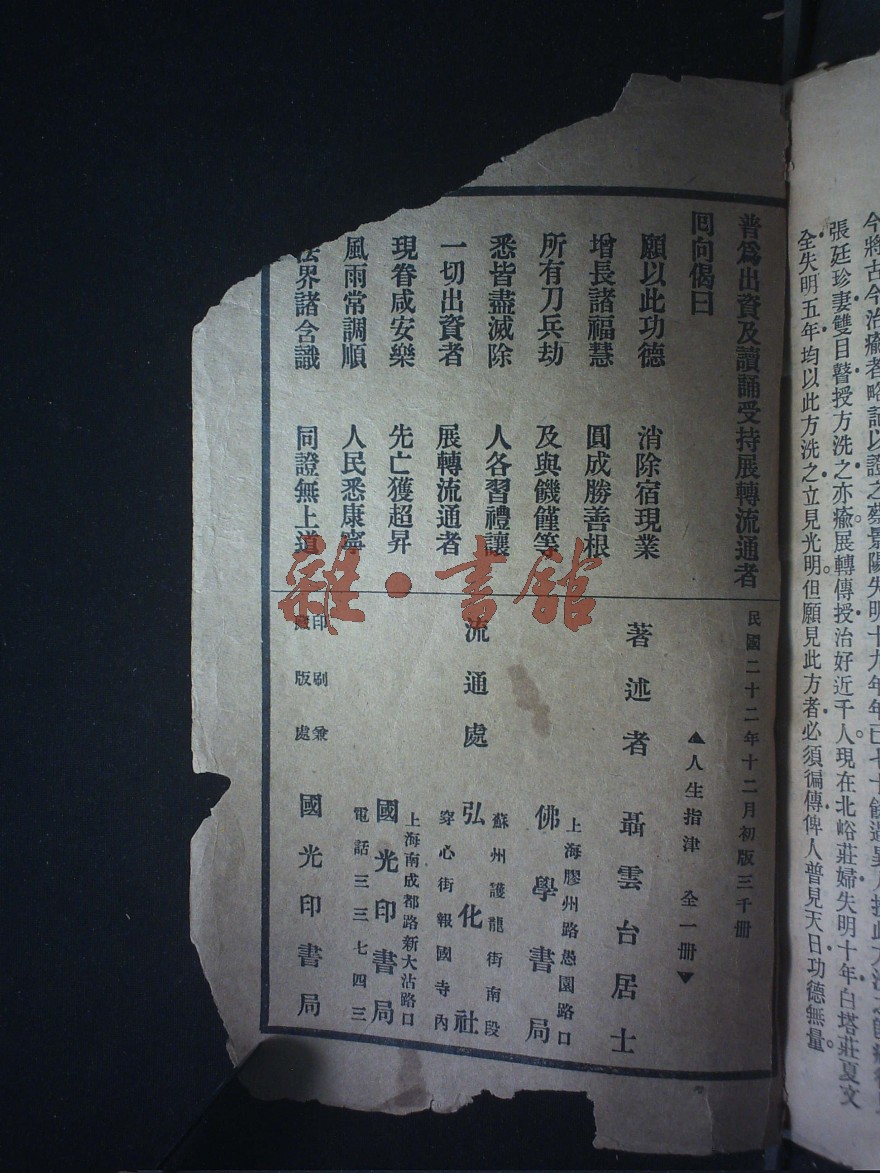 張廷珍妻雙目瞽授方洗之亦瘉。展轉傳授治好近千人。現在北峪莊婦失明十年白塔莊夏文
全失明五年均以此方洗之立見光明。但願見此方者必須徧傳俾人普見天日功德無量。
普爲出資及讀誦受持展轉流通者
回向偈曰
願以此功德　消除宿現業
增長諸福慧　圓成勝善根
所有刀兵劫　及與饑饉等
悉皆盡滅除　人各習禮讓
一切出資者　展轉流通者
現眷咸安樂　先亡獲超昇
風雨常調順　人民悉康寧
法界諸含識　同證無上道
民國二十二年十二月初版三千册
▲人生指津　全一册▼
著述者　聶雲台居士
流通處
上海膠州路愚園路口
佛學書局
蘇州護龍街南段
弘化社
穿心街報國寺內
上海南成都路新大沽路口
國光印書局
電話三三七四三
印刷兼
藏版處
國光印書局
雜·書館